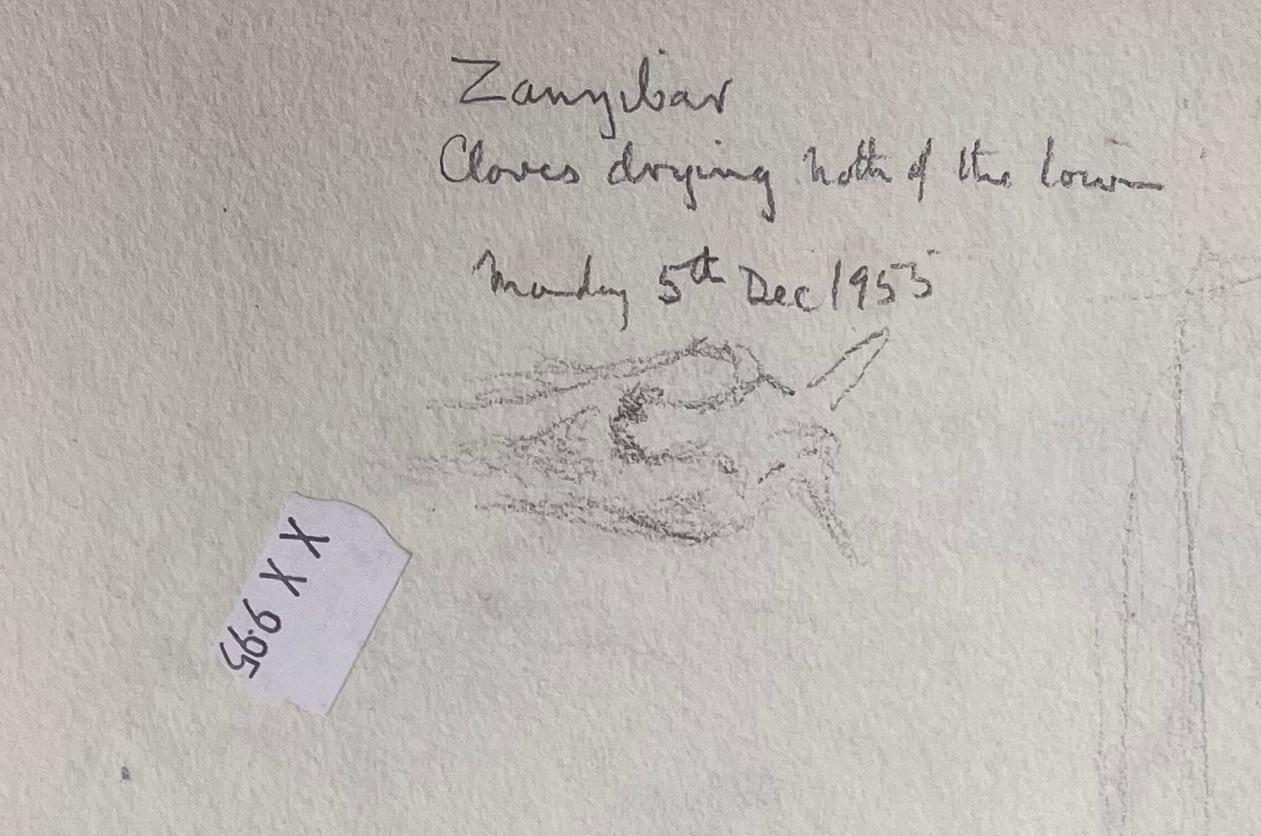 Zanzibar
Cloves drying North of the town
Monday 5th Dec 1955
X X 9.95